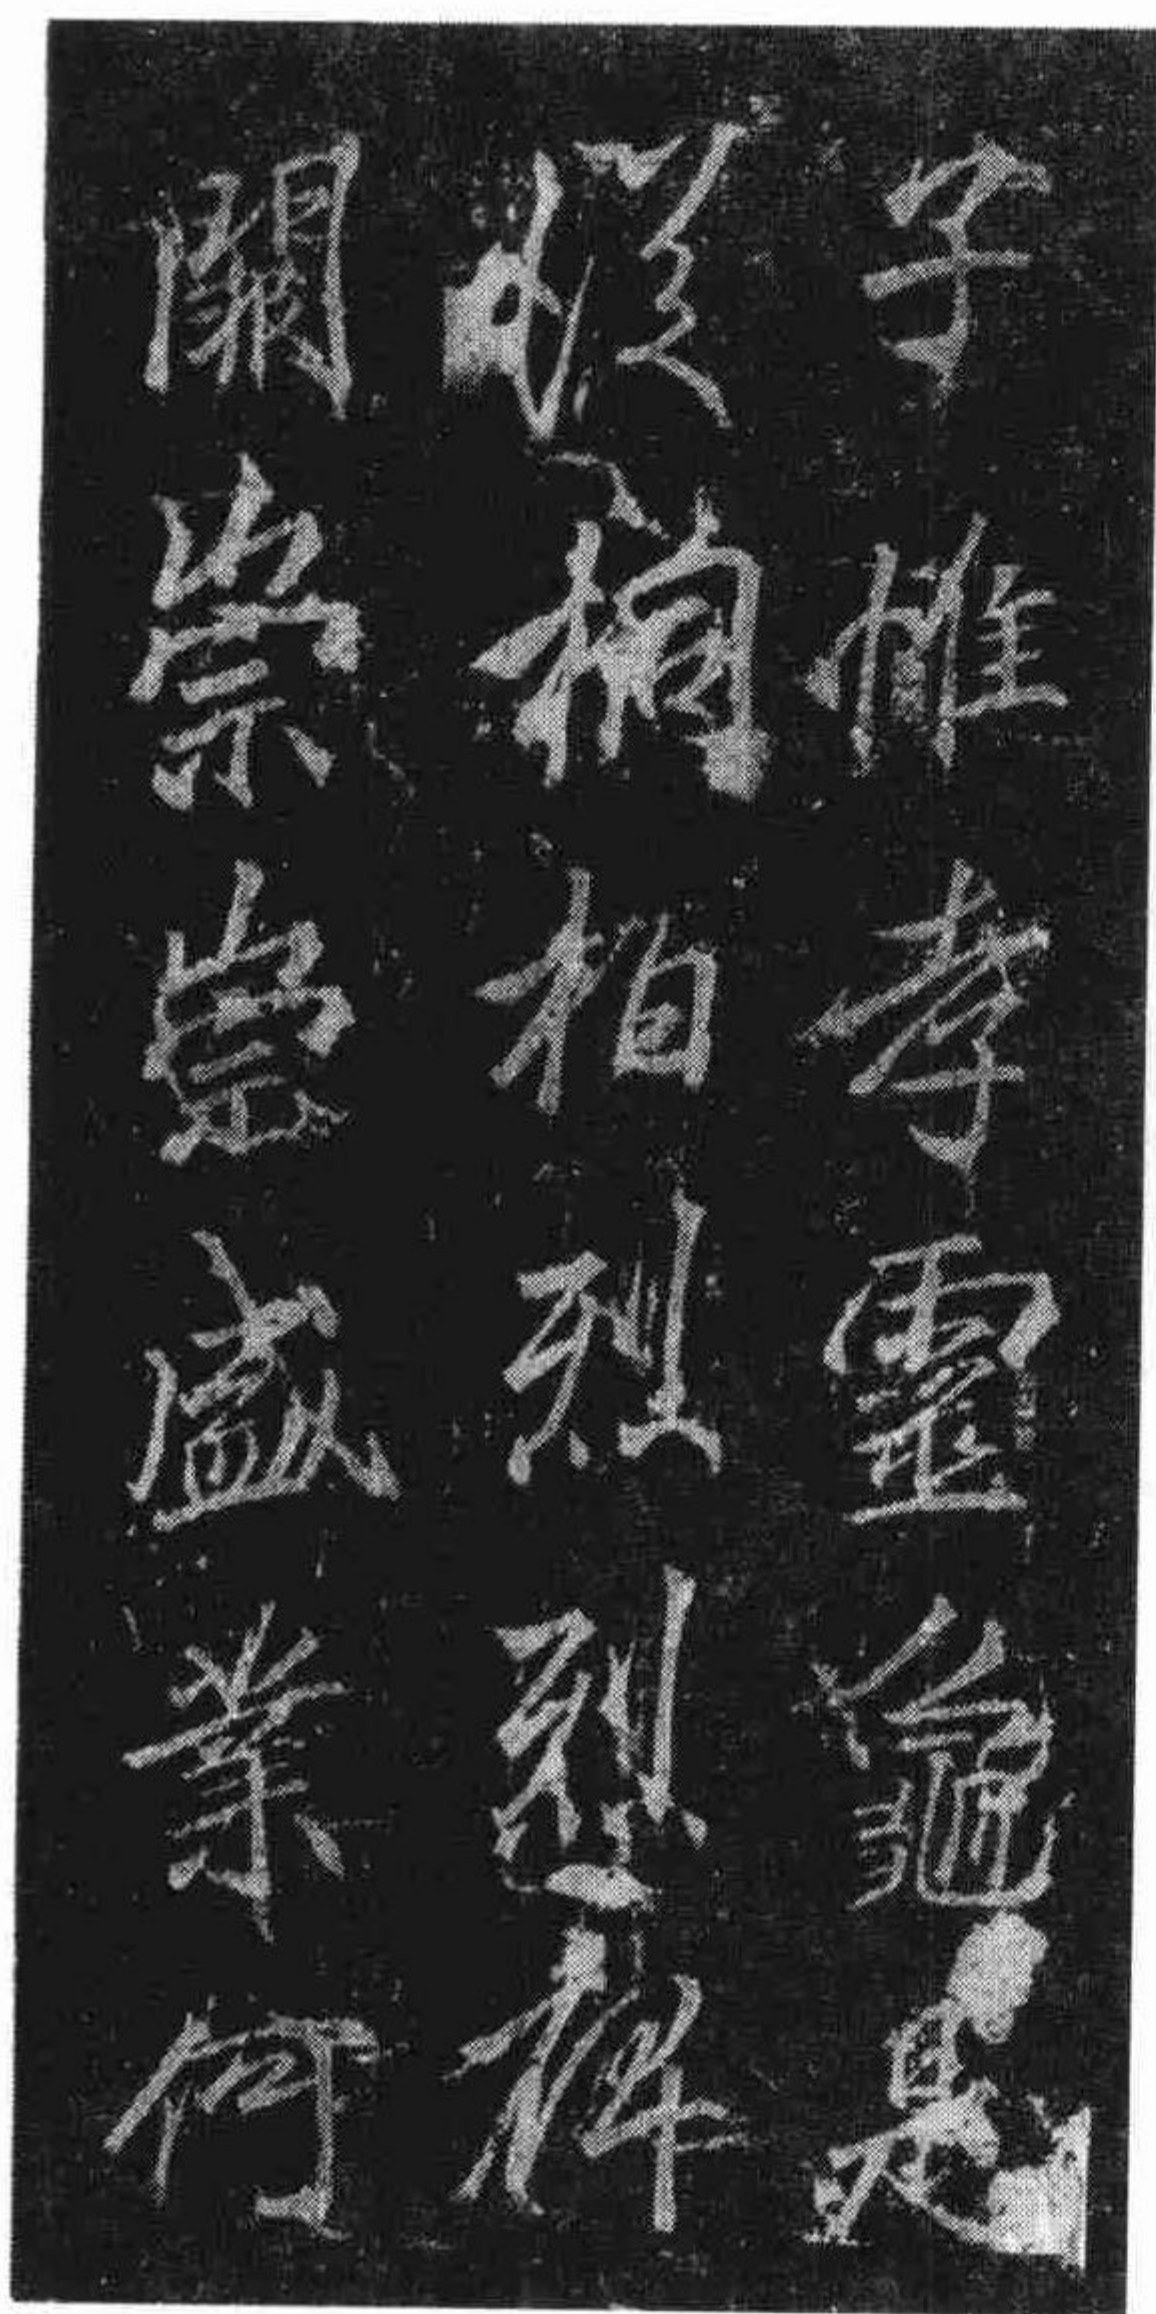 子惟孝靈龜是
從桐柏烈烈碑
闕崇崇盛業何